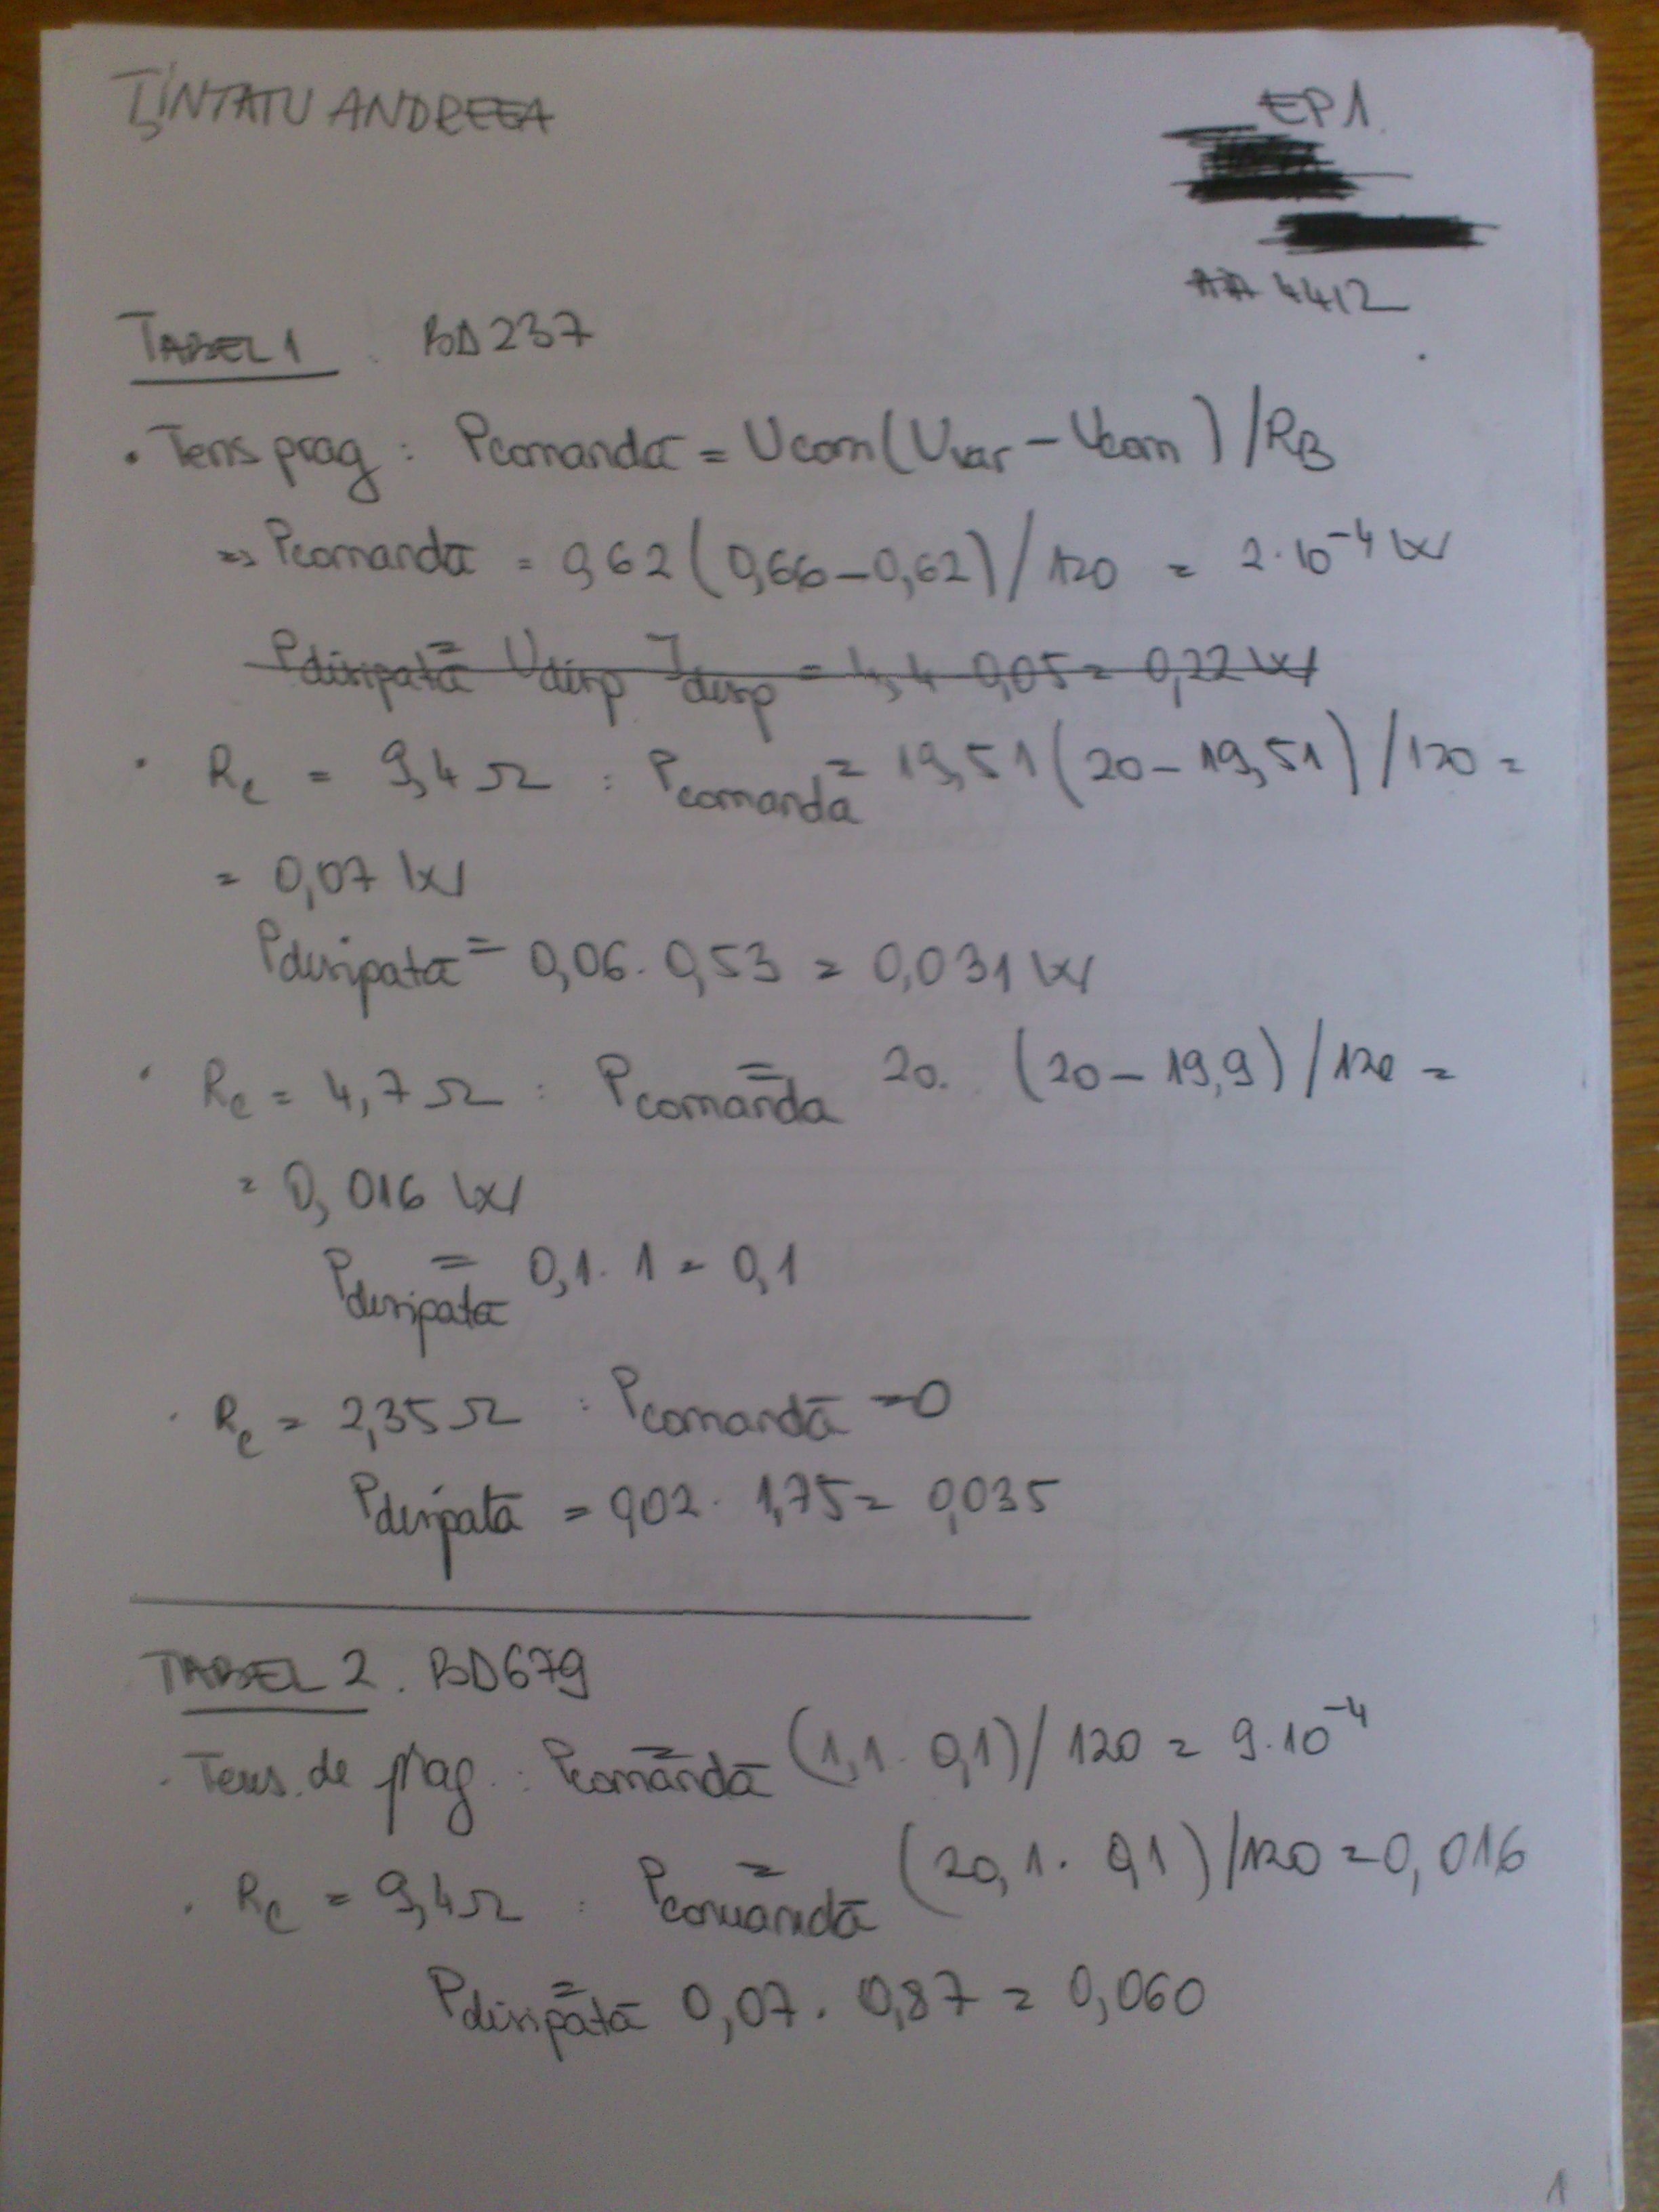 ŢINTATU ANDREEA
EP1
4412
TABEL 1 BD237
• Tens prag : Pcomandă = Ucom(Uvar - Ucom)/RB
=> Pcomandă = 0,62(0,66-0,62)/120 = 2·10⁻⁴ W
Pdisipată = Udisp Idisp = 4,4 0,05 = 0,22 W
• Rc = 9,4Ω : Pcomandă = 19,51(20-19,51)/120 =
= 0,07 W
Pdisipată = 0,06 · 0,53 = 0,031 W
• Rc = 4,7Ω : Pcomandă = 20 · (20-19,9)/120 =
= 0,016 W
Pdisipată = 0,1 · 1 = 0,1
• Rc = 2,35Ω : Pcomandă = 0
Pdisipată = 0,02 · 1,75 = 0,035
TABEL 2. BD679
• Tens. de prag : Pcomandă = (1,1 · 0,1)/120 = 9·10⁻⁴
• Rc = 9,4Ω : Pcomandă = (20,1 · 0,1)/120 = 0,016
Pdisipată = 0,07 · 0,87 = 0,060
1